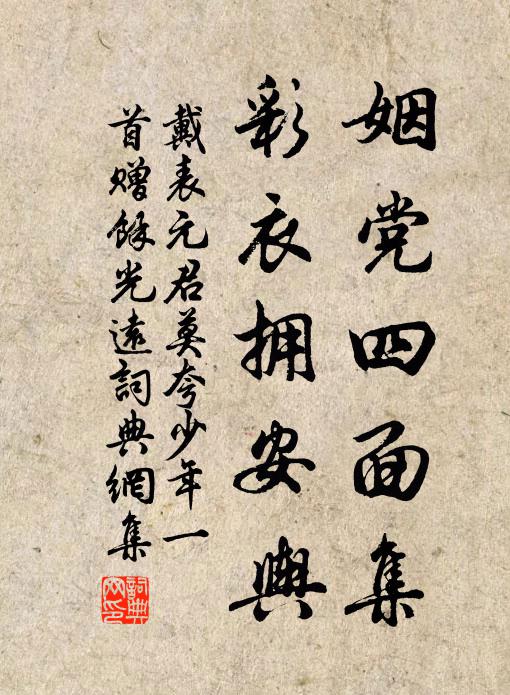 姻党四面集
彩衣拥安舆
戴表元君莫夸少年一
首赠馀光远词典網集
詞典網印